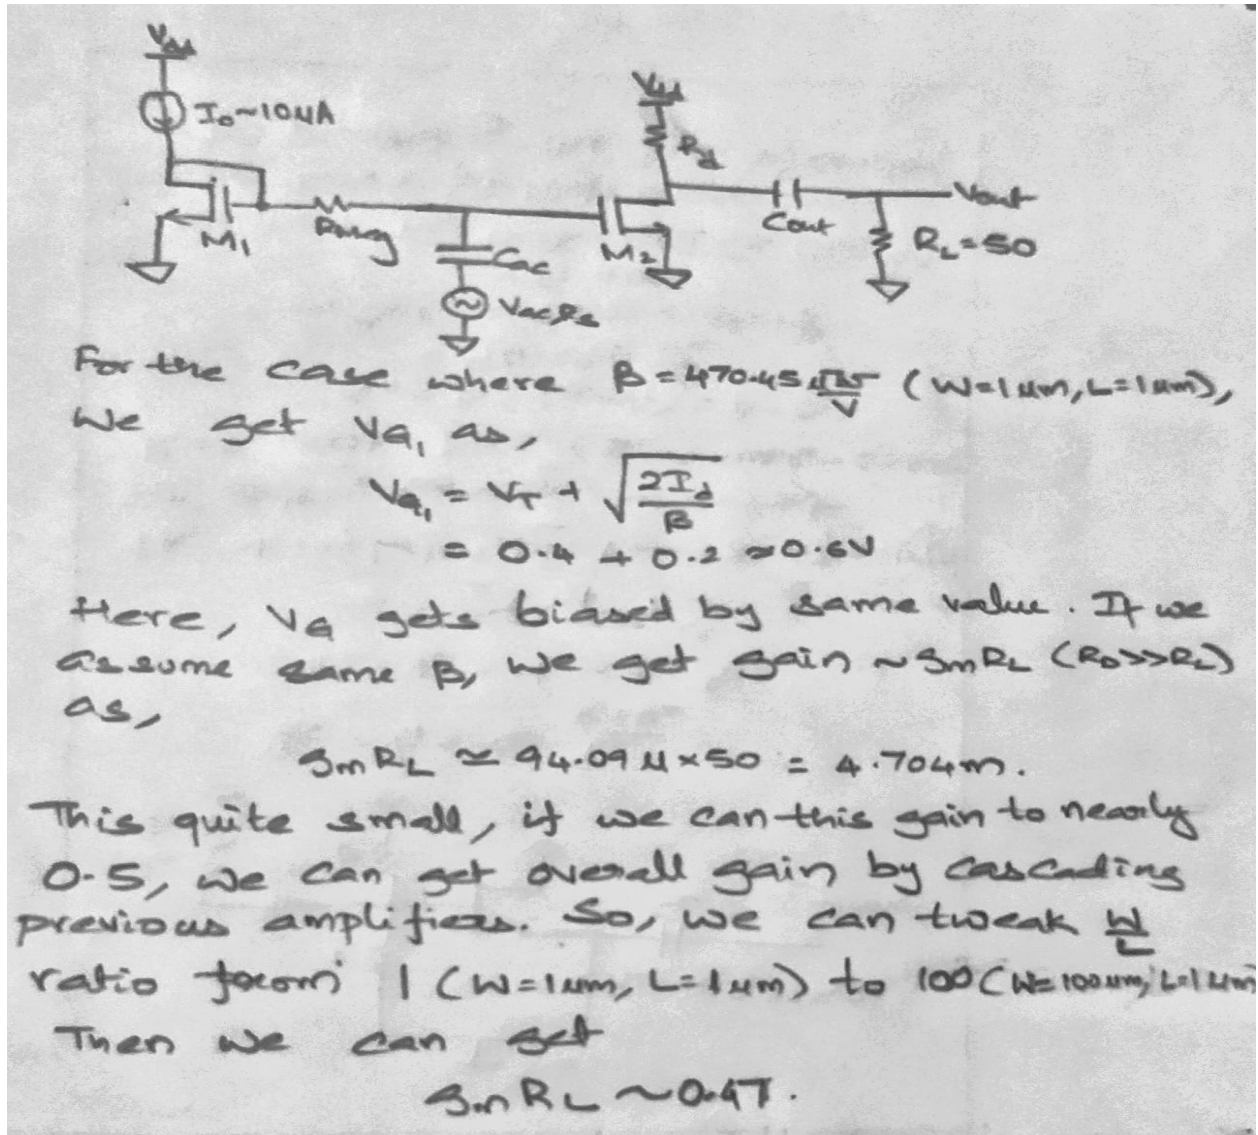 Vdd
I₀~10uA
Vdd
Rd
Vout
Cout
RL=50
M1
M2
Cac
Vac, Rs
For the case where β=470.45 (W=1um, L=1um),
we get VG1 as,
VG1 = VT + √(2Id/β)
= 0.4 + 0.2 ≈ 0.6V
Here, VG gets biased by same value. If we
assume same β, we get gain ~ gmRL (RD>>RL)
as,
gmRL ≃ 94.09 u×50 = 4.704m.
This quite small, if we can this gain to nearly
0.5, we can get overall gain by cascading
previous amplifiers. So, we can tweak W/L
ratio from 1 (W=1um, L=1um) to 100 (W=100um, L=1um
Then we can get
gmRL ~0.47.